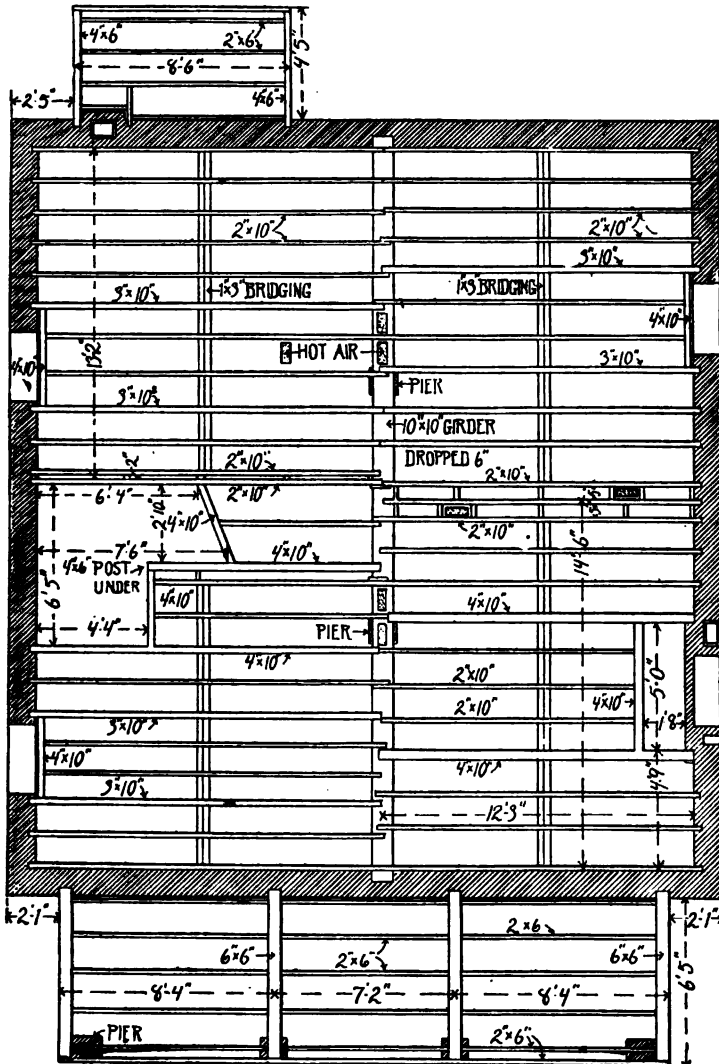 4"x6"
2"x6"
8'-6"
4'5"
2'5"
4"x6"
2"x10"
2"x10"
3"x10"
3"x10"
1"x3" BRIDGING
1"x3" BRIDGING
4"x10"
13'2"
HOT AIR
4"x10"
3"x10"
PIER
3"x10"
10"x10" GIRDER
DROPPED 6"
2"x10"
2"x10"
6'-4"
2"x10"
2'10"
4"x10"
2"x10"
14'-6"
7'6"
4"x6" POST
UNDER
4"x10"
6'5"
4"x10"
4"x10"
4'4"
PIER
4"x10"
2"x10"
5'-0"
2"x10"
4"x10"
1'8"
3"x10"
4"x10"
4"x10"
4'9"
3"x10"
12'-3"
2'1"
2'1"
2"x6"
6"x6"
2"x6"
6"x6"
8'-4"
7'2"
8'4"
6'5"
PIER
2"x6"